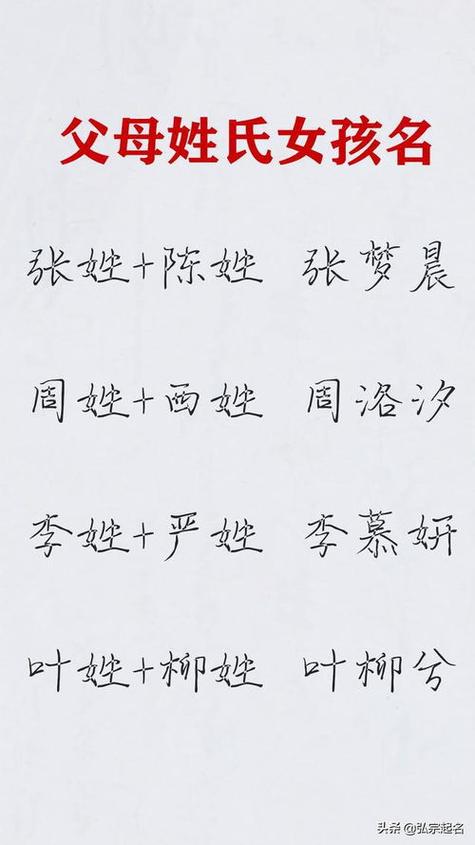 父母姓氏女孩名
张姓+陈姓 张梦晨
周姓+西姓 周洛汐
李姓+严姓 李慕妍
叶姓+柳姓 叶柳兮
头条 @弘宗起名